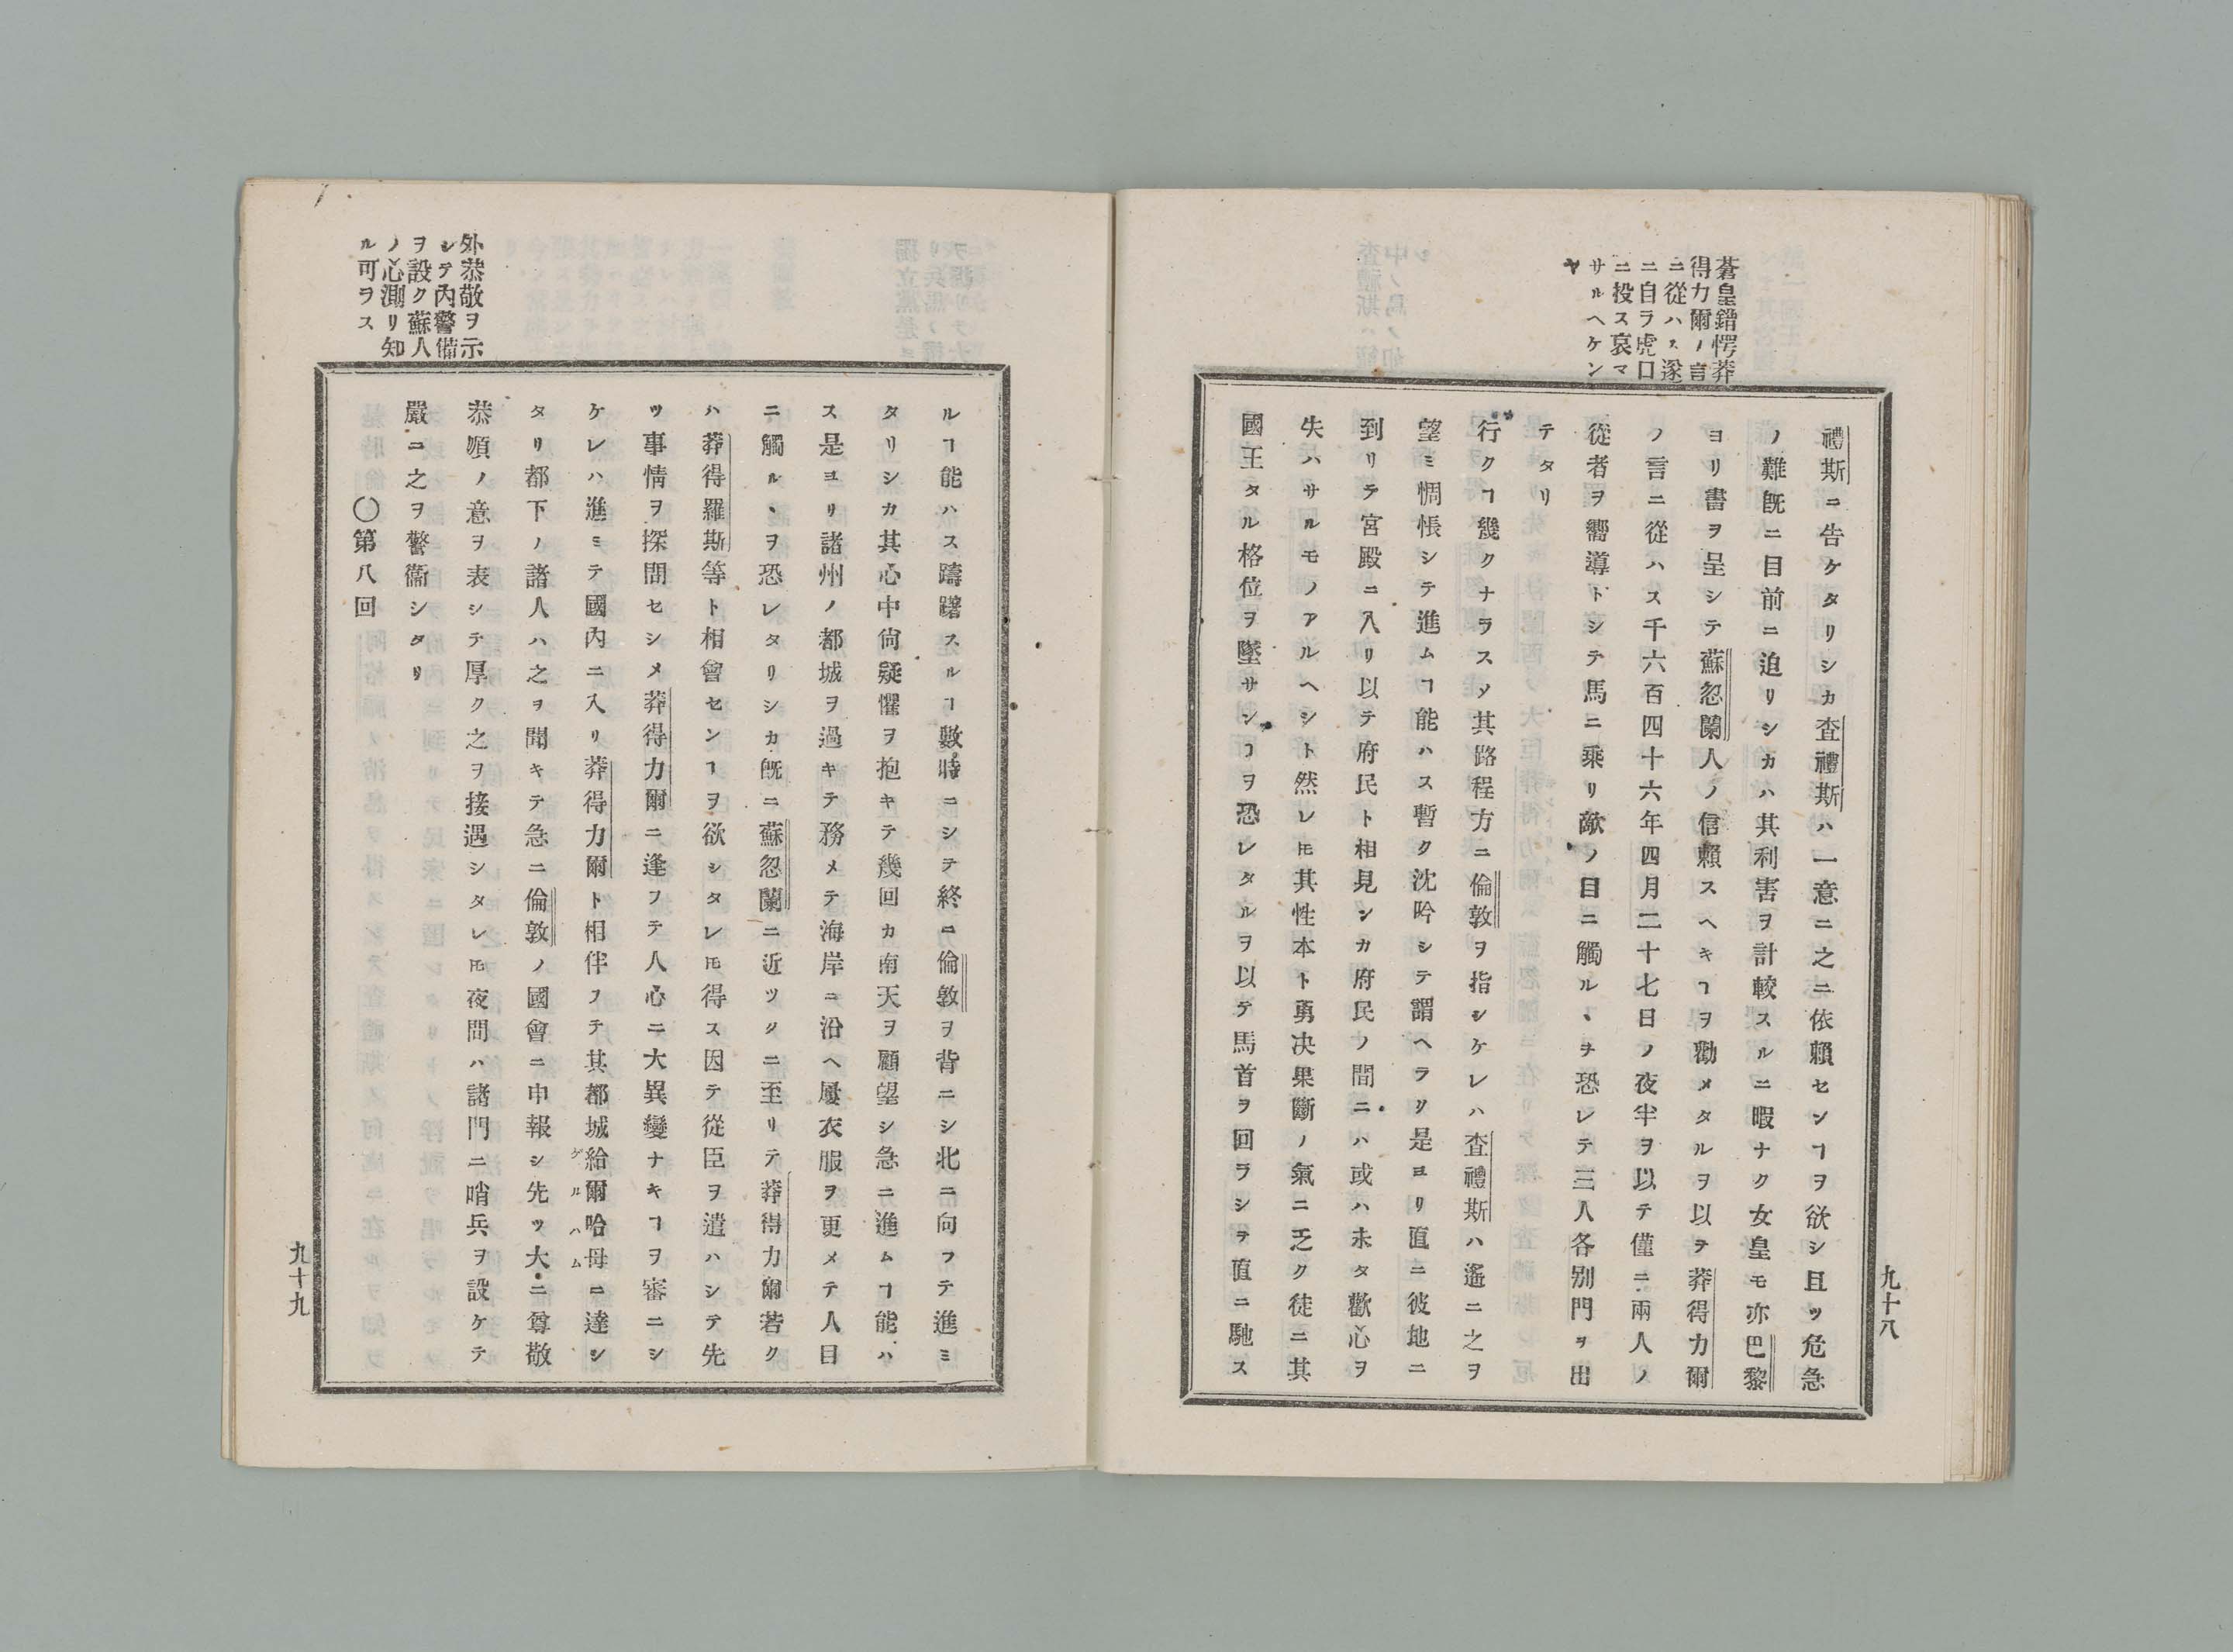 蒼皇錯愕莽
得力爾ノ言
ニ從ハス遂
ニ自ラ虎口
ニ投ス哀マ
サルヘケン
ヤ
禮斯ニ告ケタリシカ査禮斯ハ一意ニ之ニ依賴センヿヲ欲シ且ツ危急
ノ難既ニ目前ニ迫リシカハ其利害ヲ計較スルニ暇ナク女皇モ亦巴黎
ヨリ書ヲ呈シテ蘇忽蘭人ノ信賴スヘキヿヲ勸メタルヲ以テ莽得力爾
ノ言ニ從ハス千六百四十六年四月二十七日ノ夜半ヲ以テ僅ニ兩人ノ
從者ヲ嚮導トシテ馬ニ乘リ敵ノ目ニ觸ルヽヲ恐レテ三人各別門ヲ出
テタリ
行クヿ幾クナラスソ其路程方ニ倫敦ヲ指シケレハ査禮斯ハ遙ニ之ヲ
望ミ惆悵シテ進ムヿ能ハス暫ク沈吟シテ謂ヘラク是ヨリ直ニ彼地ニ
到リテ宮殿ニ入リ以テ府民ト相見ンカ府民ノ間ニハ或ハ未タ歡心ヲ
失ハサルモノアルヘシト然レ𪜈其性本ト勇決果斷ノ氣ニ乏ク徒ニ其
國王タル格位ヲ墜サンヿヲ恐レタルヲ以テ馬首ヲ回ラシテ直ニ馳ス
九十八
外恭敬ヲ示
シテ內警備
ヲ設ク蘇人
ノ心測リ知
ル可ラス
ルヿ能ハス躊躇スルヿ數時ニシテ終ニ倫敦ヲ背ニシ北ニ向フテ進ミ
タリシカ其心中尙疑懼ヲ抱キテ幾回カ南天ヲ顧望シ急ニ進ムヿ能ハ
ス是ヨリ諸州ノ都城ヲ過キテ務メテ海岸ニ沿ヘ屢衣服ヲ更メテ人目
ニ觸ルヽヲ恐レタリシカ旣ニ蘇忽蘭ニ近ツクニ至リテ莽得力爾若ク
ハ莽得羅斯等ト相會センヿヲ欲シタレ𪜈得ス因テ從臣ヲ遣ハシテ先
ツ事情ヲ探問セシメ莽得力爾ニ逢フテ人心ニ大異變ナキヿヲ審ニシ
ケレハ進ミテ國內ニ入リ莽得力爾ト相伴フテ其都城給爾哈母ニ達シ
ゲルハム
タリ都下ノ諸人ハ之ヲ聞キテ急ニ倫敦ノ國會ニ申報シ先ツ大ニ尊敬
恭順ノ意ヲ表シテ厚ク之ヲ接遇シタレ𪜈夜間ハ諸門ニ哨兵ヲ設ケテ
嚴ニ之ヲ警衞シタリ
〇第八回
九十九